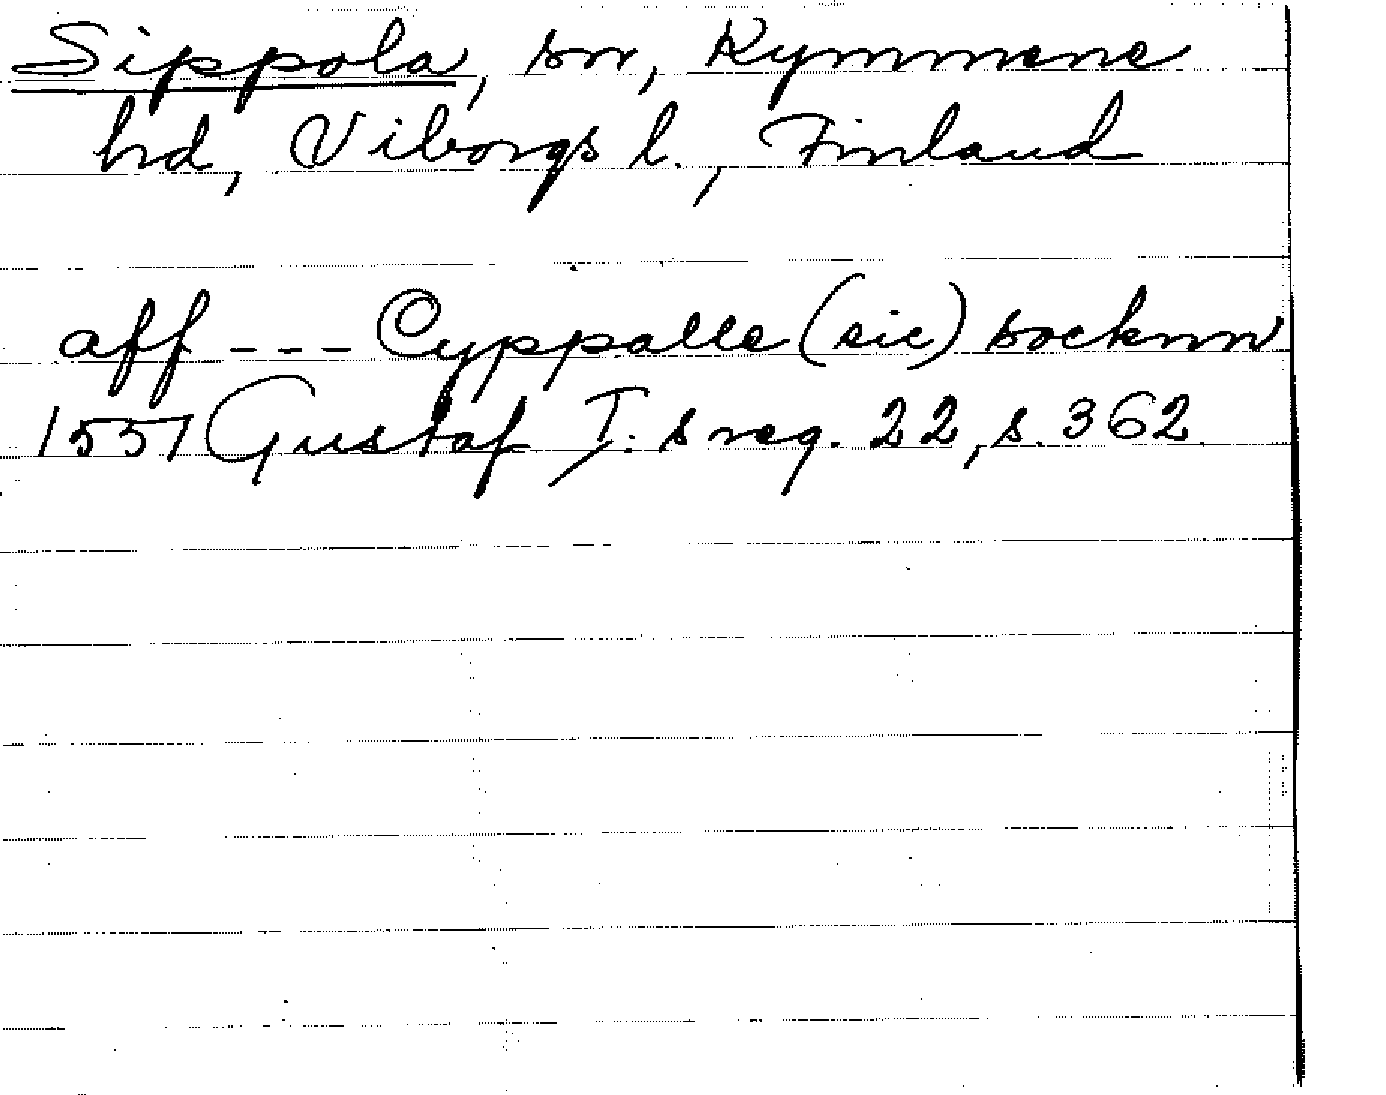 Sippola, sn, Kymmene
hd, Viborgs l., Finland
aff --- Cyppalle (sic) socknn
1557 Gustaf I:s reg. 22, s. 362